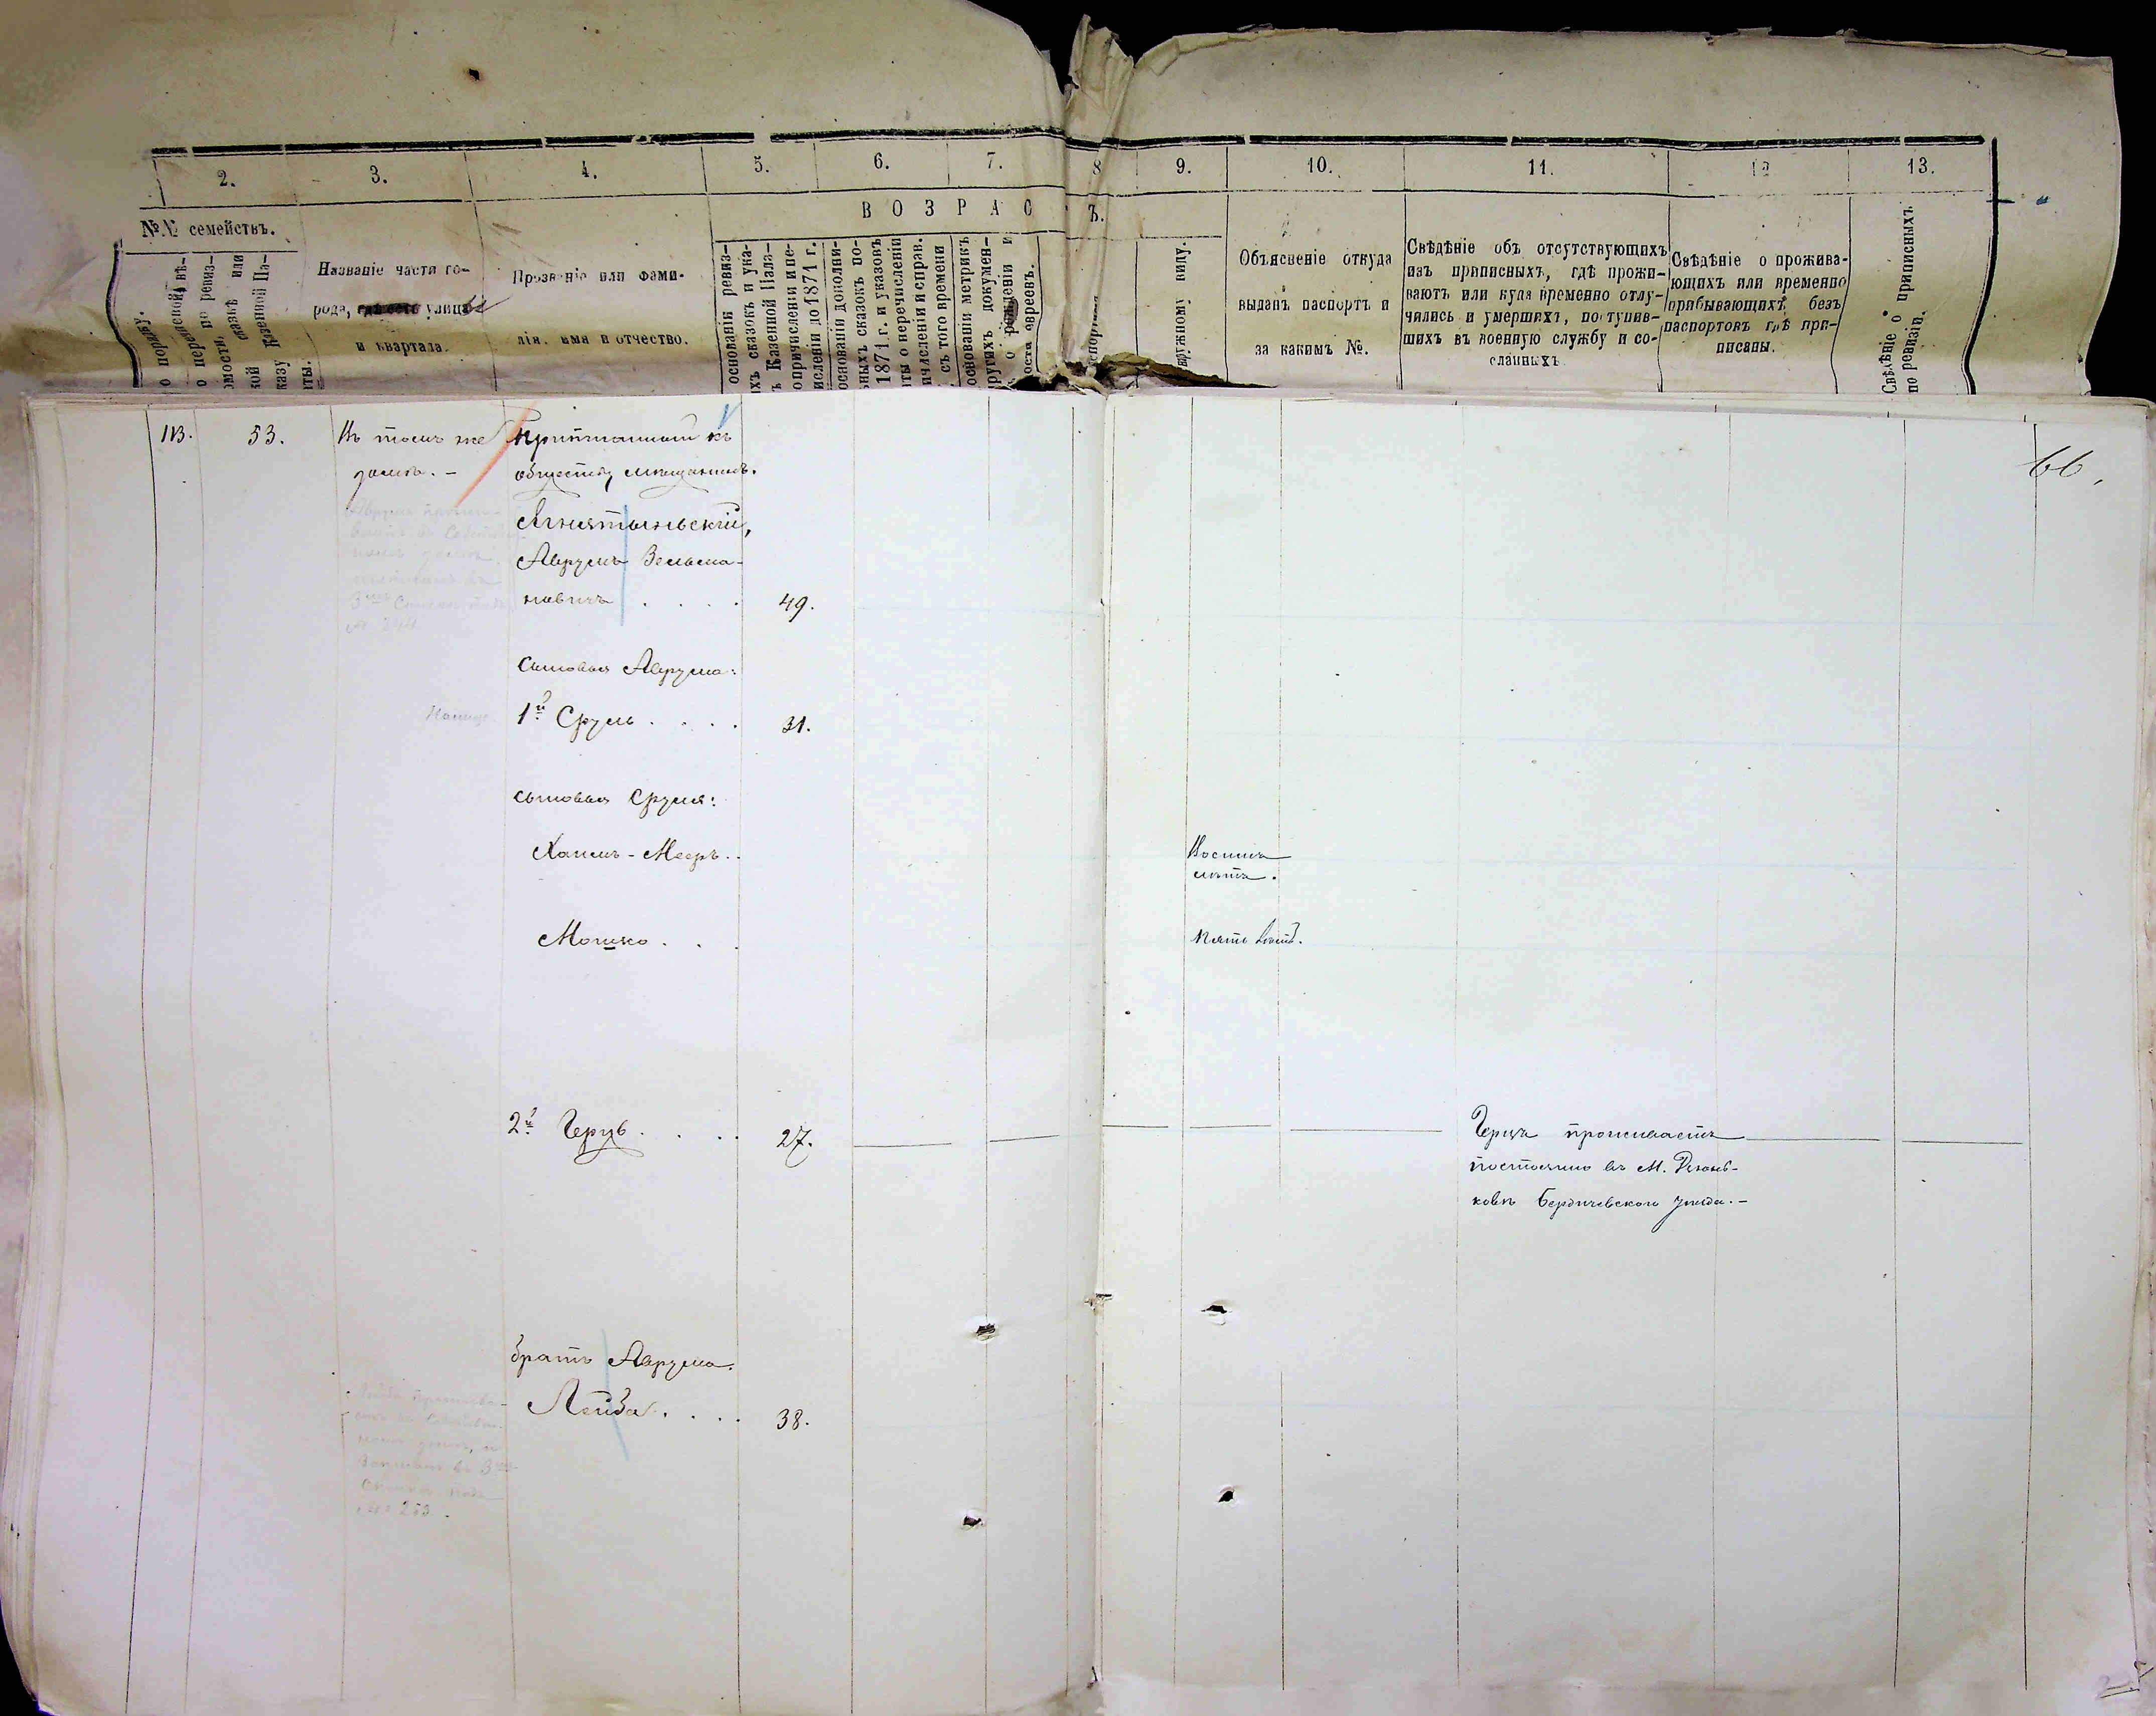 2.
3.
4.
5.
6.
7.
8
9.
10.
11.
12
13.
ВОЗРАС
Ъ.
№№ семействъ.
о порядку.
о переписной вѣ-
домости,
о по ревиз-
ской сказкѣ или
казу Казенной Па-
ты.
Названіе части го-
рода, гдѣ есть улицы
и квартала.
Прозваніе или фами-
лія, имя и отчество.
основаніи ревиз-
хъ сказокъ и ука-
ъ Казенной Пала-
о причисленіи и пе-
исленіи до 1871 г.
основаніи дополни-
ныхъ сказокъ по-
1871 г. и указовъ
ты о перечисленіи
ичисленіи и справ.
съ того времени
основаніи метрикъ
ругихъ докумен-
о рожденіи и
ости евреевъ.
ружному виду.
Объясненіе откуда
выданъ паспортъ и
за какимъ №.
Свѣдѣніе объ отсутствующихъ
изъ приписныхъ, гдѣ прожи-
ваютъ или куда временно отлу-
чились и умершихъ, поступив-
шихъ въ военную службу и со-
сланныхъ
Свѣдѣніе о прожива-
ющихъ или временно
прибывающихъ безъ
паспортовъ гдѣ при-
писаны.
Свѣдѣніе о приписныхъ
по ревизіи.
113.
53.
Въ томъ же
домѣ. –
Приписанный къ
обществу мѣщанинъ.
Аврумъ Зельма-
новичъ . . . .
49.
66.
сыновья Аврума:
1й Сруль . . . .
31.
сыновья Сруля:
Хаимъ-Мееръ . .
Восемь
лѣтъ.
Мошко . . .
Пять лѣтъ.
2й Герцъ . . . .
27.
Герцъ проживаетъ
постоянно въ М.
Бердичевскаго уѣзда. –
братъ Аврума.
Лейба . . . .
38.